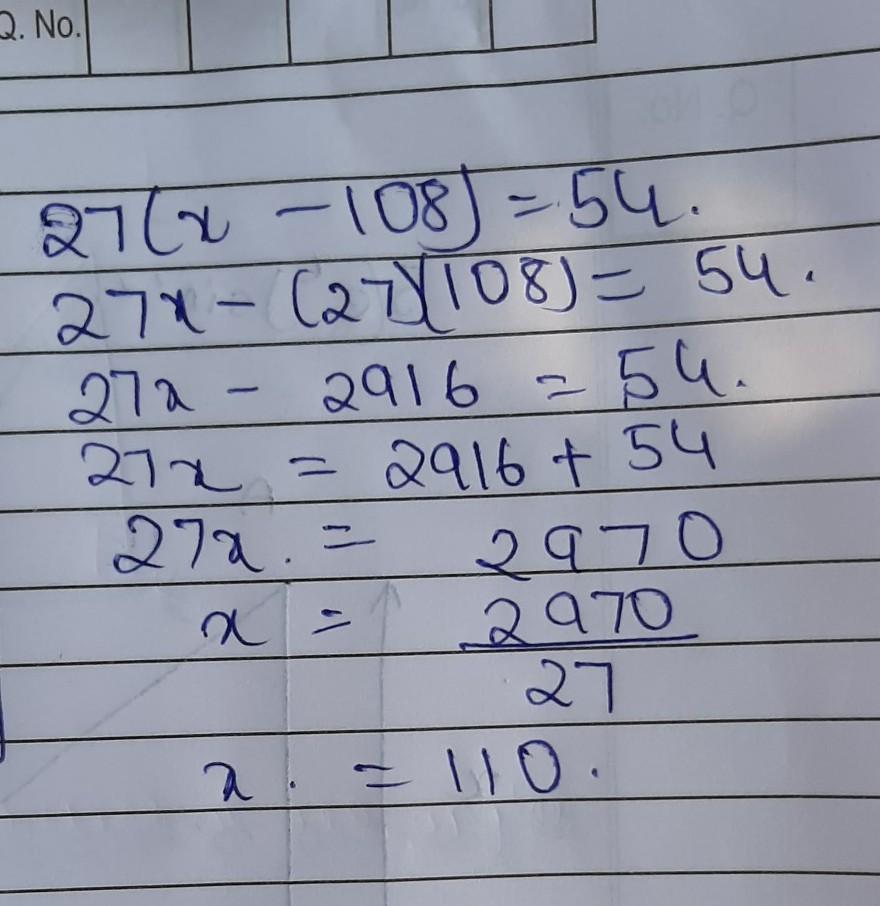 Q. No.
27(x - 108) = 54.
27x - (27)(108) = 54.
27x - 2916 = 54.
27x = 2916 + 54
27x. = 2970
x = 2970
27
x. = 110.